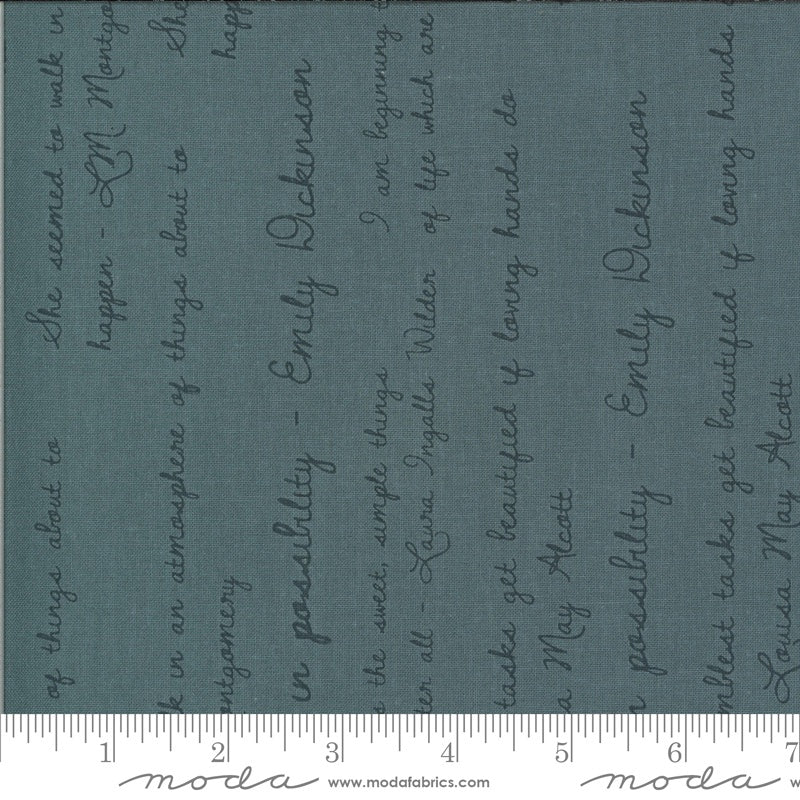 of things about to
She seemed to walk in
happen - L.M. Montgo
k in an atmosphere of things about to
She
ontgomery
happ
in possibility - Emily Dickinson
s the sweet, simple things
I am beginning
ter all - Laura Ingalls Wilder
of life which are
tasks get beautified if loving hands do
a May Alcott
n possibility - Emily Dickinson
mblest tasks get beautified if loving hands
Louisa May Alcott
1 2 3 4 5 6 7
moda www.modafabrics.com moda w